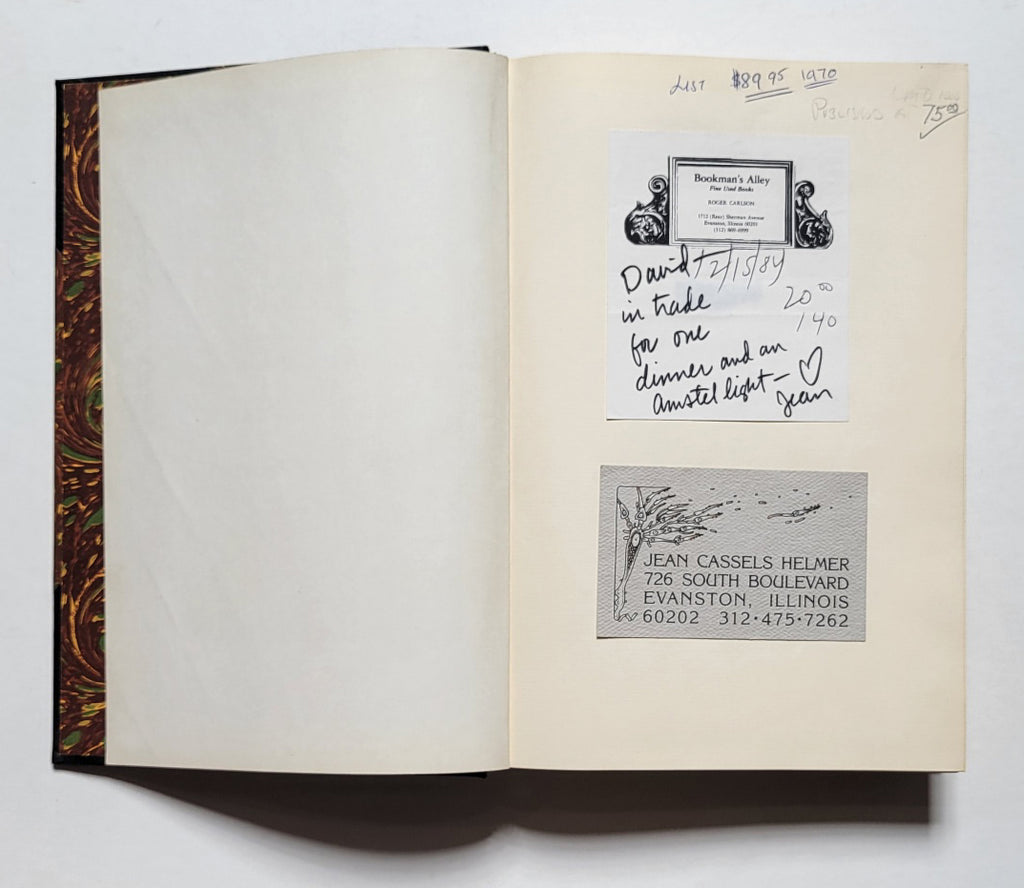 LIST $89.95 1970
75.00
Bookman's Alley
Fine Used Books
ROGER CARLSON
1712 (Rear) Sherman Avenue
Evanston, Illinois 60201
(312) 869-6999
David 12/15/84
in trade 20.00
for one 140
dinner and an
amstel light — ♡
Jean
JEAN CASSELS HELMER
726 SOUTH BOULEVARD
EVANSTON, ILLINOIS
60202 312·475·7262